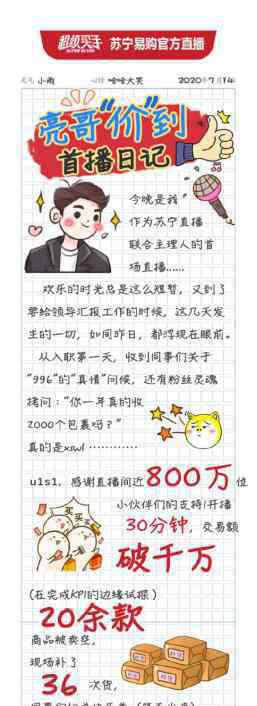 超级买手 苏宁易购官方直播
天气 小雨 心情 哈哈大笑 2020年7月14
亮哥"价"到
首播日记
今晚是我
作为苏宁直播
联合主理人的首
场直播……
欢乐的时光总是这么短暂，又到了
要给领导汇报工作的时候，这几天发
生的一切，如同昨日，都浮现在眼前。
从入职第一天，收到同事们关于
"996"的"真情"问候，还有粉丝灵魂
拷问："你一年真的收
2000个包裹吗？"
真的是xswl …………
u1s1，感谢直播间近800万位
小伙伴们的支持!开播
30分钟，交易额
买买买
破千万
(在完成KPI的边缘试探)
20余款
商品被卖空，
现场补了
36次货，